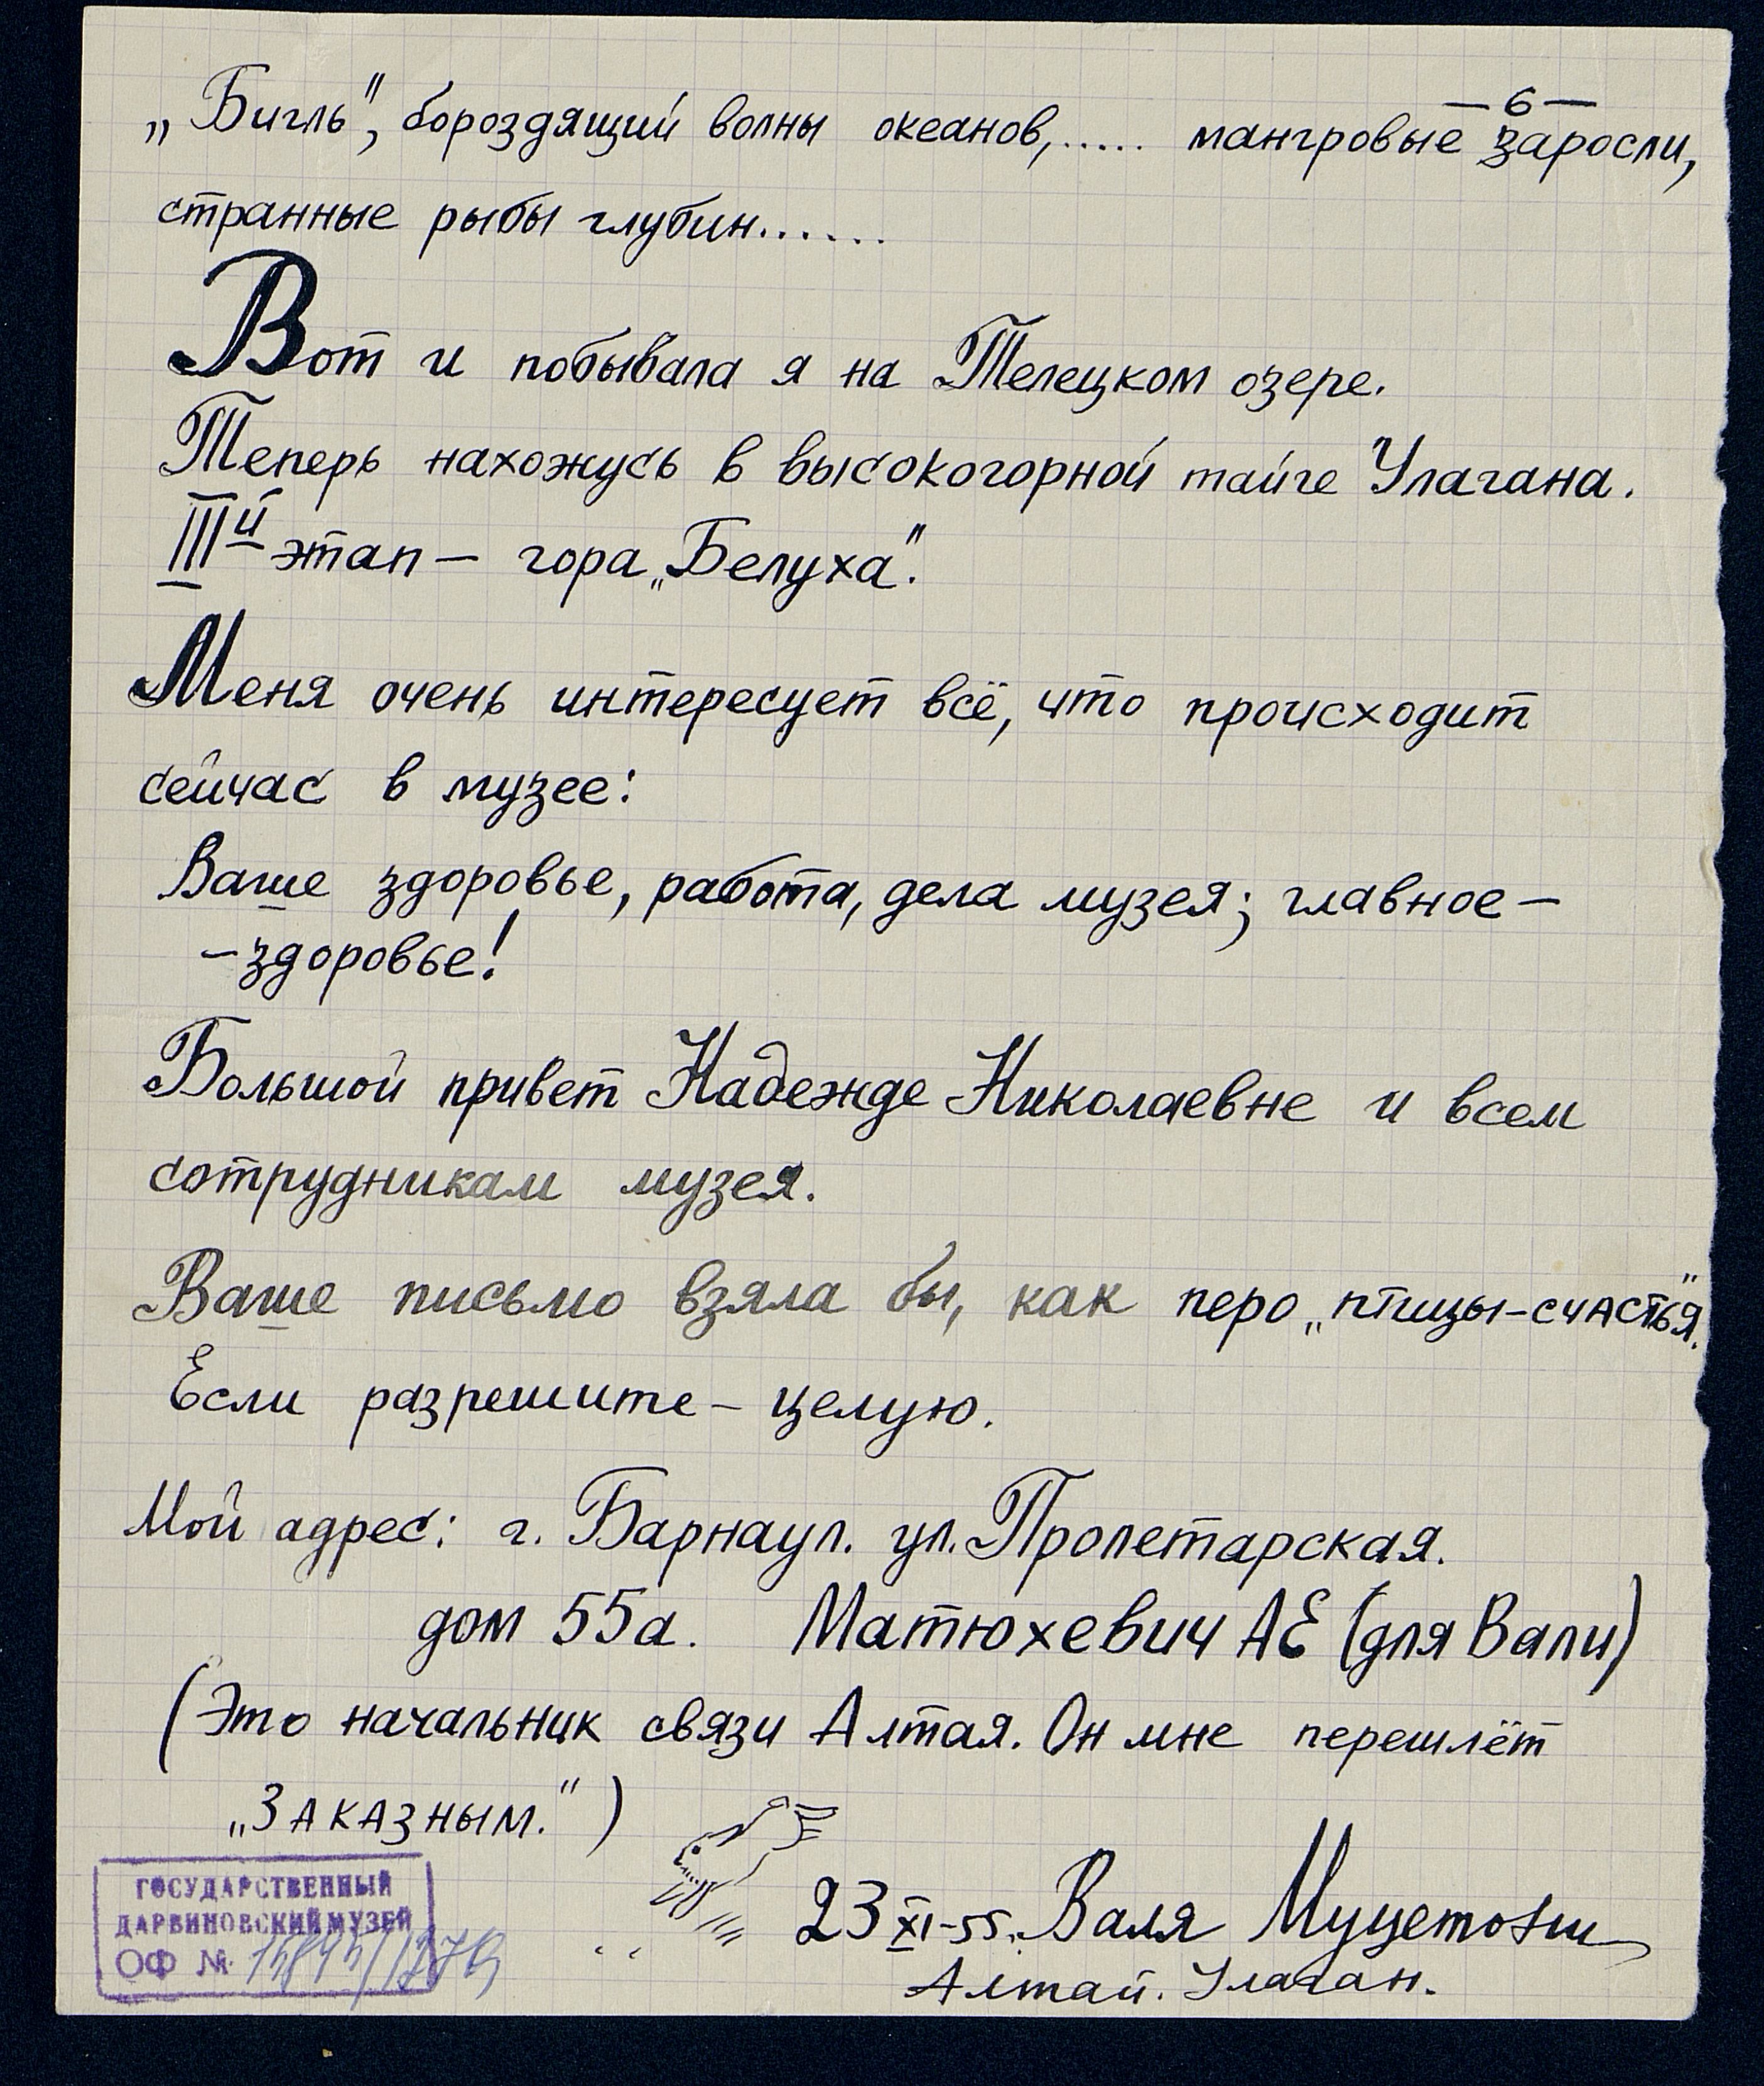 — 6 —
„Бигль", бороздящий волны океанов,..... мангровые заросли,
странные рыбы глубин......
Вот и побывала я на Телецком озере.
Теперь нахожусь в высокогорной тайге Улагана.
III й этап — гора „Белуха".
Меня очень интересует всё, что происходит
сейчас в музее:
Ваше здоровье, работа, дела музея; главное —
— здоровье!
Большой привет Надежде Николаевне и всем
сотрудникам музея.
Ваше письмо взяла бы, как перо „птицы-счастья".
Если разрешите — целую.
Мой адрес: г. Барнаул. ул. Пролетарская.
дом 55а. Матюхевич АЕ (для Вали)
(Это начальник связи Алтая. Он мне перешлёт
„Заказным.")
23 XI-55. Валя
Алтай. Улаган.
ГОСУДАРСТВЕННЫЙ
ДАРВИНОВСКИЙ МУЗЕЙ
ОФ №